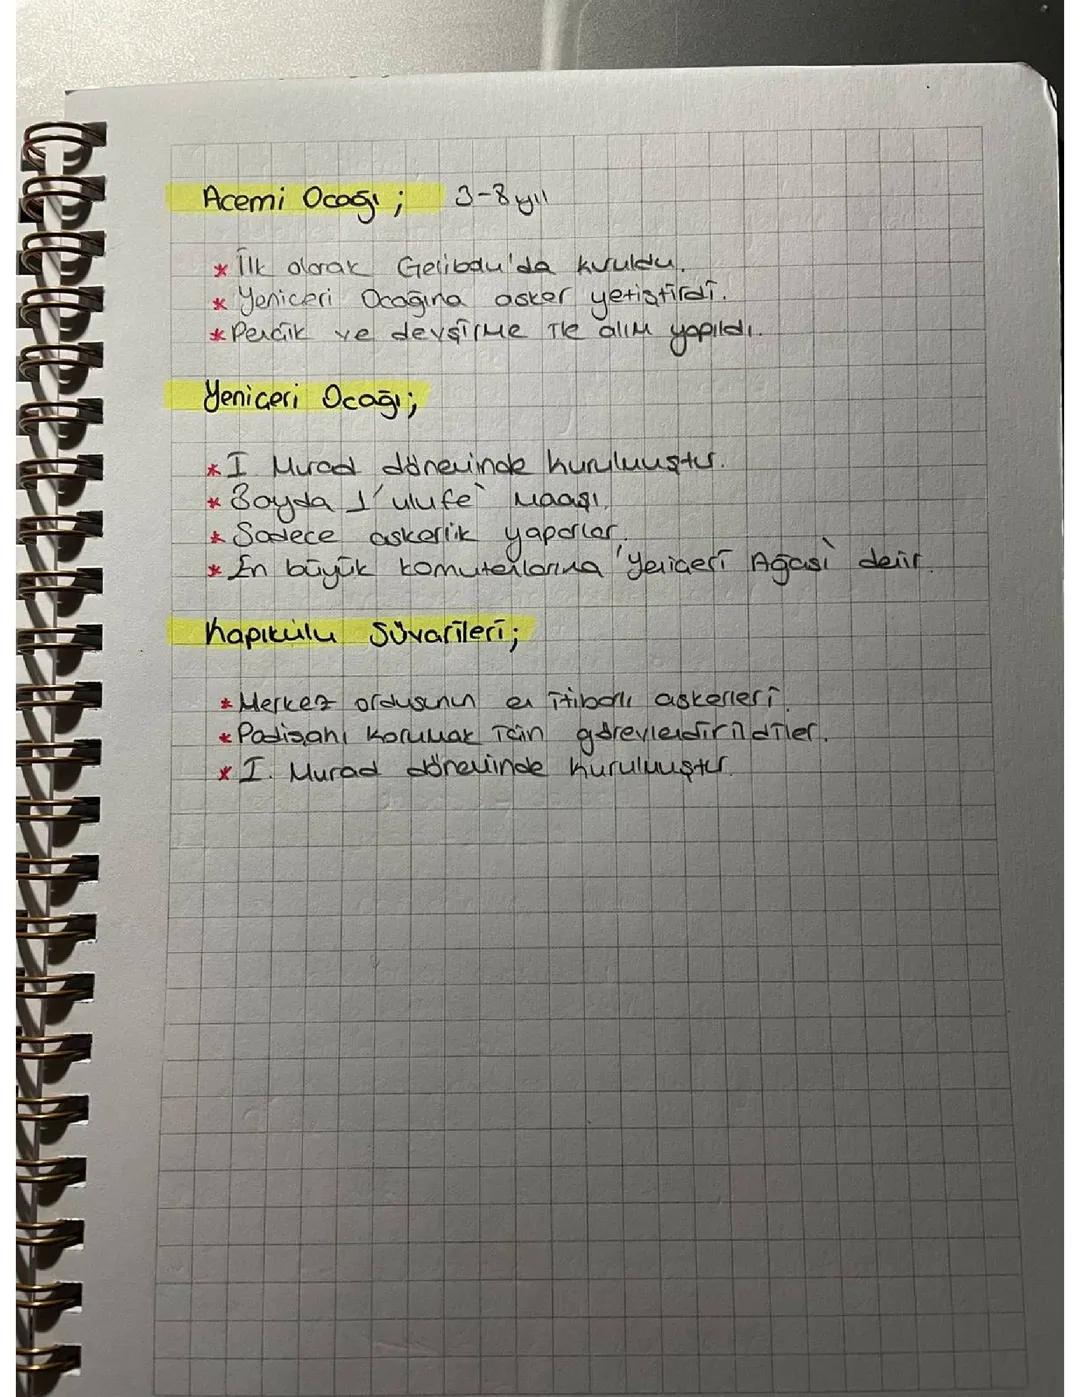 Acemi Ocağı; 3-8 yıl
* İlk olarak Gelibolu'da kuruldu.
* Yeniçeri Ocağına asker yetiştirdi.
* Pencik ve devşirme ile alım yapıldı.
Yeniçeri Ocağı;
* I Murad döneminde kurulmuştur.
* 3 ayda 1 'ulufe' maaşı.
* Sadece askerlik yaparlar.
* En büyük komutanlarına 'Yeniçeri Ağası' denir.
Kapıkulu Süvarileri;
* Merkez ordusunun en itibarlı askerleri.
* Padişahı korumak için görevlendirildiler.
* I. Murad döneminde kurulmuştur.